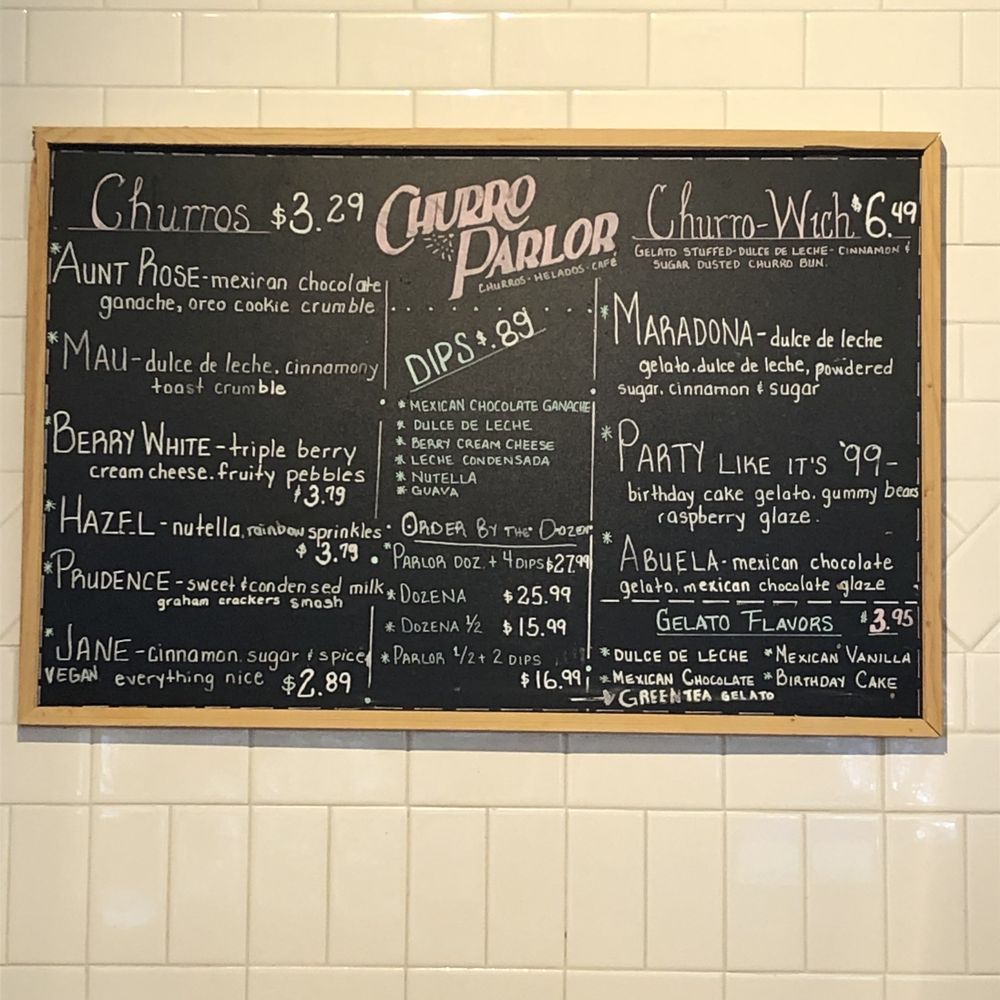 Churros $3.29
*AUNT ROSE-mexican chocolate
ganache, oreo cookie crumble
*MAU-dulce de leche, cinnamony
toast crumble
*BERRY WHITE-triple berry
cream cheese, fruity pebbles
$3.79
*HAZEL-nutella, rainbow sprinkles
$3.79
*PRUDENCE-sweet & condensed milk
graham crackers smash
*JANE-cinnamon, sugar & spice
VEGAN everything nice $2.89
CHURRO
PARLOR
CHURROS·HELADOS·CAFÉ
DIPS $.89
*MEXICAN CHOCOLATE GANACHE
*DULCE DE LECHE
*BERRY CREAM CHEESE
*LECHE CONDENSADA
*NUTELLA
*GUAVA
ORDER BY THE DOZEN
*PARLOR DOZ. + 4 DIPS $27.99
*DOZENA $25.99
*DOZENA ½ $15.99
*PARLOR ½ + 2 DIPS
$16.99
Churro-Wich $6.49
GELATO STUFFED-DULCE DE LECHE-CINNAMON &
SUGAR DUSTED CHURRO BUN.
*MARADONA-dulce de leche
gelato, dulce de leche, powdered
sugar, cinnamon & sugar
*PARTY LIKE IT'S '99-
birthday cake gelato, gummy bears
raspberry glaze.
*ABUELA-mexican chocolate
gelato, mexican chocolate glaze
GELATO FLAVORS $3.95
*DULCE DE LECHE *MEXICAN VANILLA
*MEXICAN CHOCOLATE *BIRTHDAY CAKE
GREEN TEA GELATO